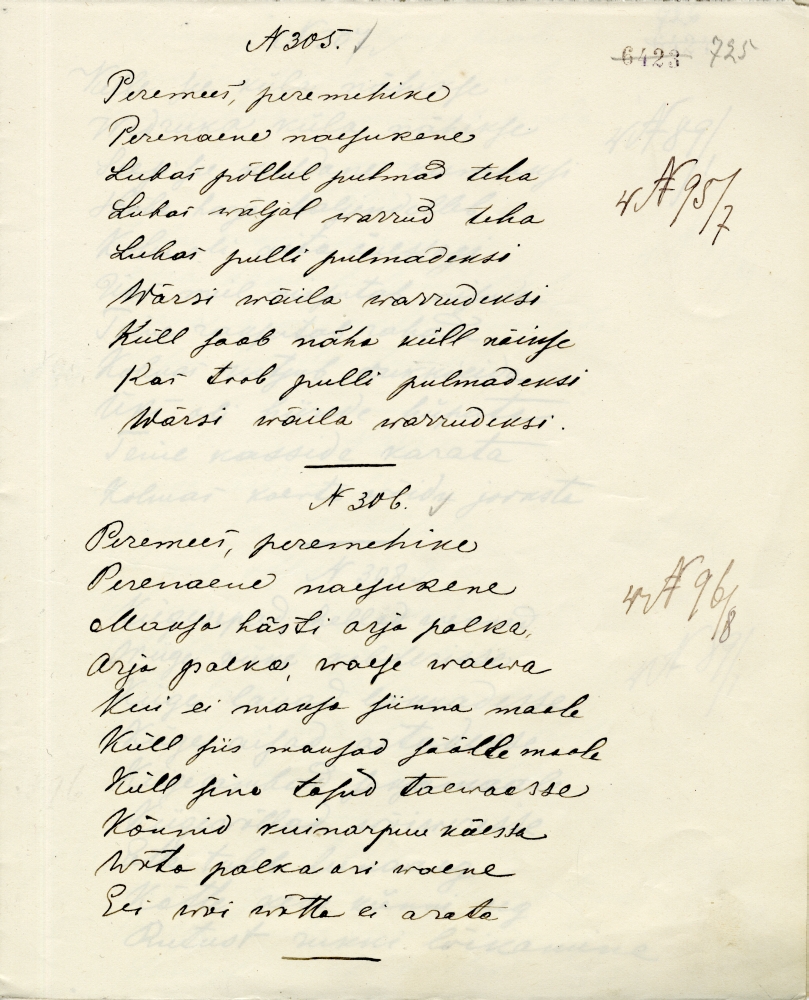 N 305.
6423 725
Peremees, peremehike
Perenaene naesukene
Lubas põllul pulmad teha
w N 95/7
Lubas wäljal warrud teha
Lubas pulli pulmadeksi
Wärsi wäila warrudeksi
Küll saab näha küll
Kas toob pulli pulmadeksi
Wärsi wäila warrudeksi.
N 306.
Peremees, peremehike
Perenaene naesukene
w N 96/8
Maksa hästi arja palka,
Arja palka, waese waewa
Kui ei maksa siinna maale
Küll siis maksad säälle maale
Küll sina tasud taewaesse
Kõnnid kuinarpuu käessa
Wõta palka ori waene
Eei wõi wõtta ei arata